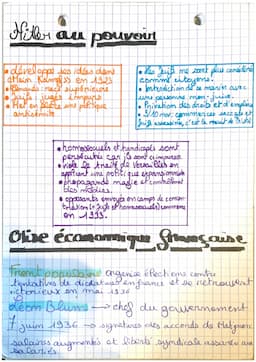 Hitler au pouvoir
• développe ses idées dans
Mein Kampf en 1925
• Allemands : race supérieure
• Juifs : jugés impurs
• Met en place une politique
antisémite
• Les Juifs ne sont plus considérés
comme citoyens.
• Interdiction de se marier avec
une personne non-juive.
• Privation des droits et d'emplois
• homosexuels et handicapés sont
persécutés car ils sont impurs.
• viole le traité de Versailles en
appliquant une politique expansionniste
• propagande
• opposants envoyés en camps de concen-
tration (+ Juifs et homosexuels)
en 1933.
Crise économique française
Front populaire organise élections contre
tentatives de dictature en france et se retrouvent
victorieux en mai 1936
Léon Blum → chef du gouvernement
7 juin 1936 → signatures des accords de Matignon:
salaires augmentés et liberté syndicale assurée aux
salariés